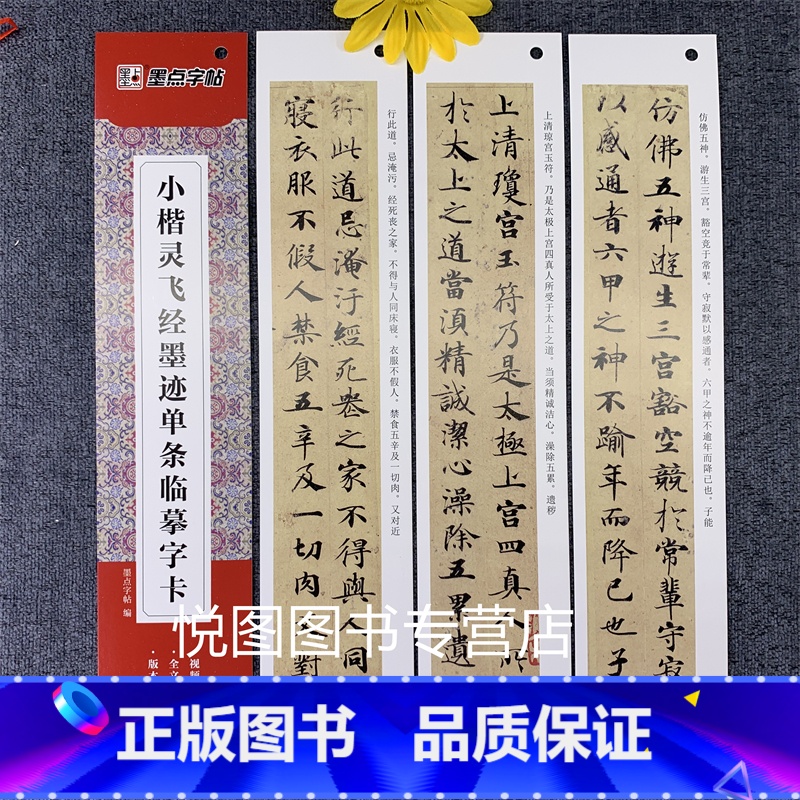 墨点
墨点字帖
小楷灵飞经墨迹单条临摹字卡
墨点字帖 编
·全文
·版本
行此道忌淹汙經死喪之家不得與人同
寢衣服不假人禁食五辛及一切肉
對
行此道。忌淹污。经死丧之家。不得与人同床寝。衣服不假人。禁食五辛及一切肉。又对近
上清瓊宫玉符乃是太極上宫四真
於太上之道當湏精誠潔心澡除五累遺
上清琼宫玉符。乃是太极上宫四真人所受于太上之道。当须精诚洁心。澡除五累。遗秽
仿佛五神遊生三宫豁空競於常輩守寂
以感通者六甲之神不踰年而降己也子
仿佛五神。游生三宫。豁空竞于常辈。守寂默以感通者。六甲之神不逾年而降己也。子能
悦图图书专营店
正版图书 品质保证